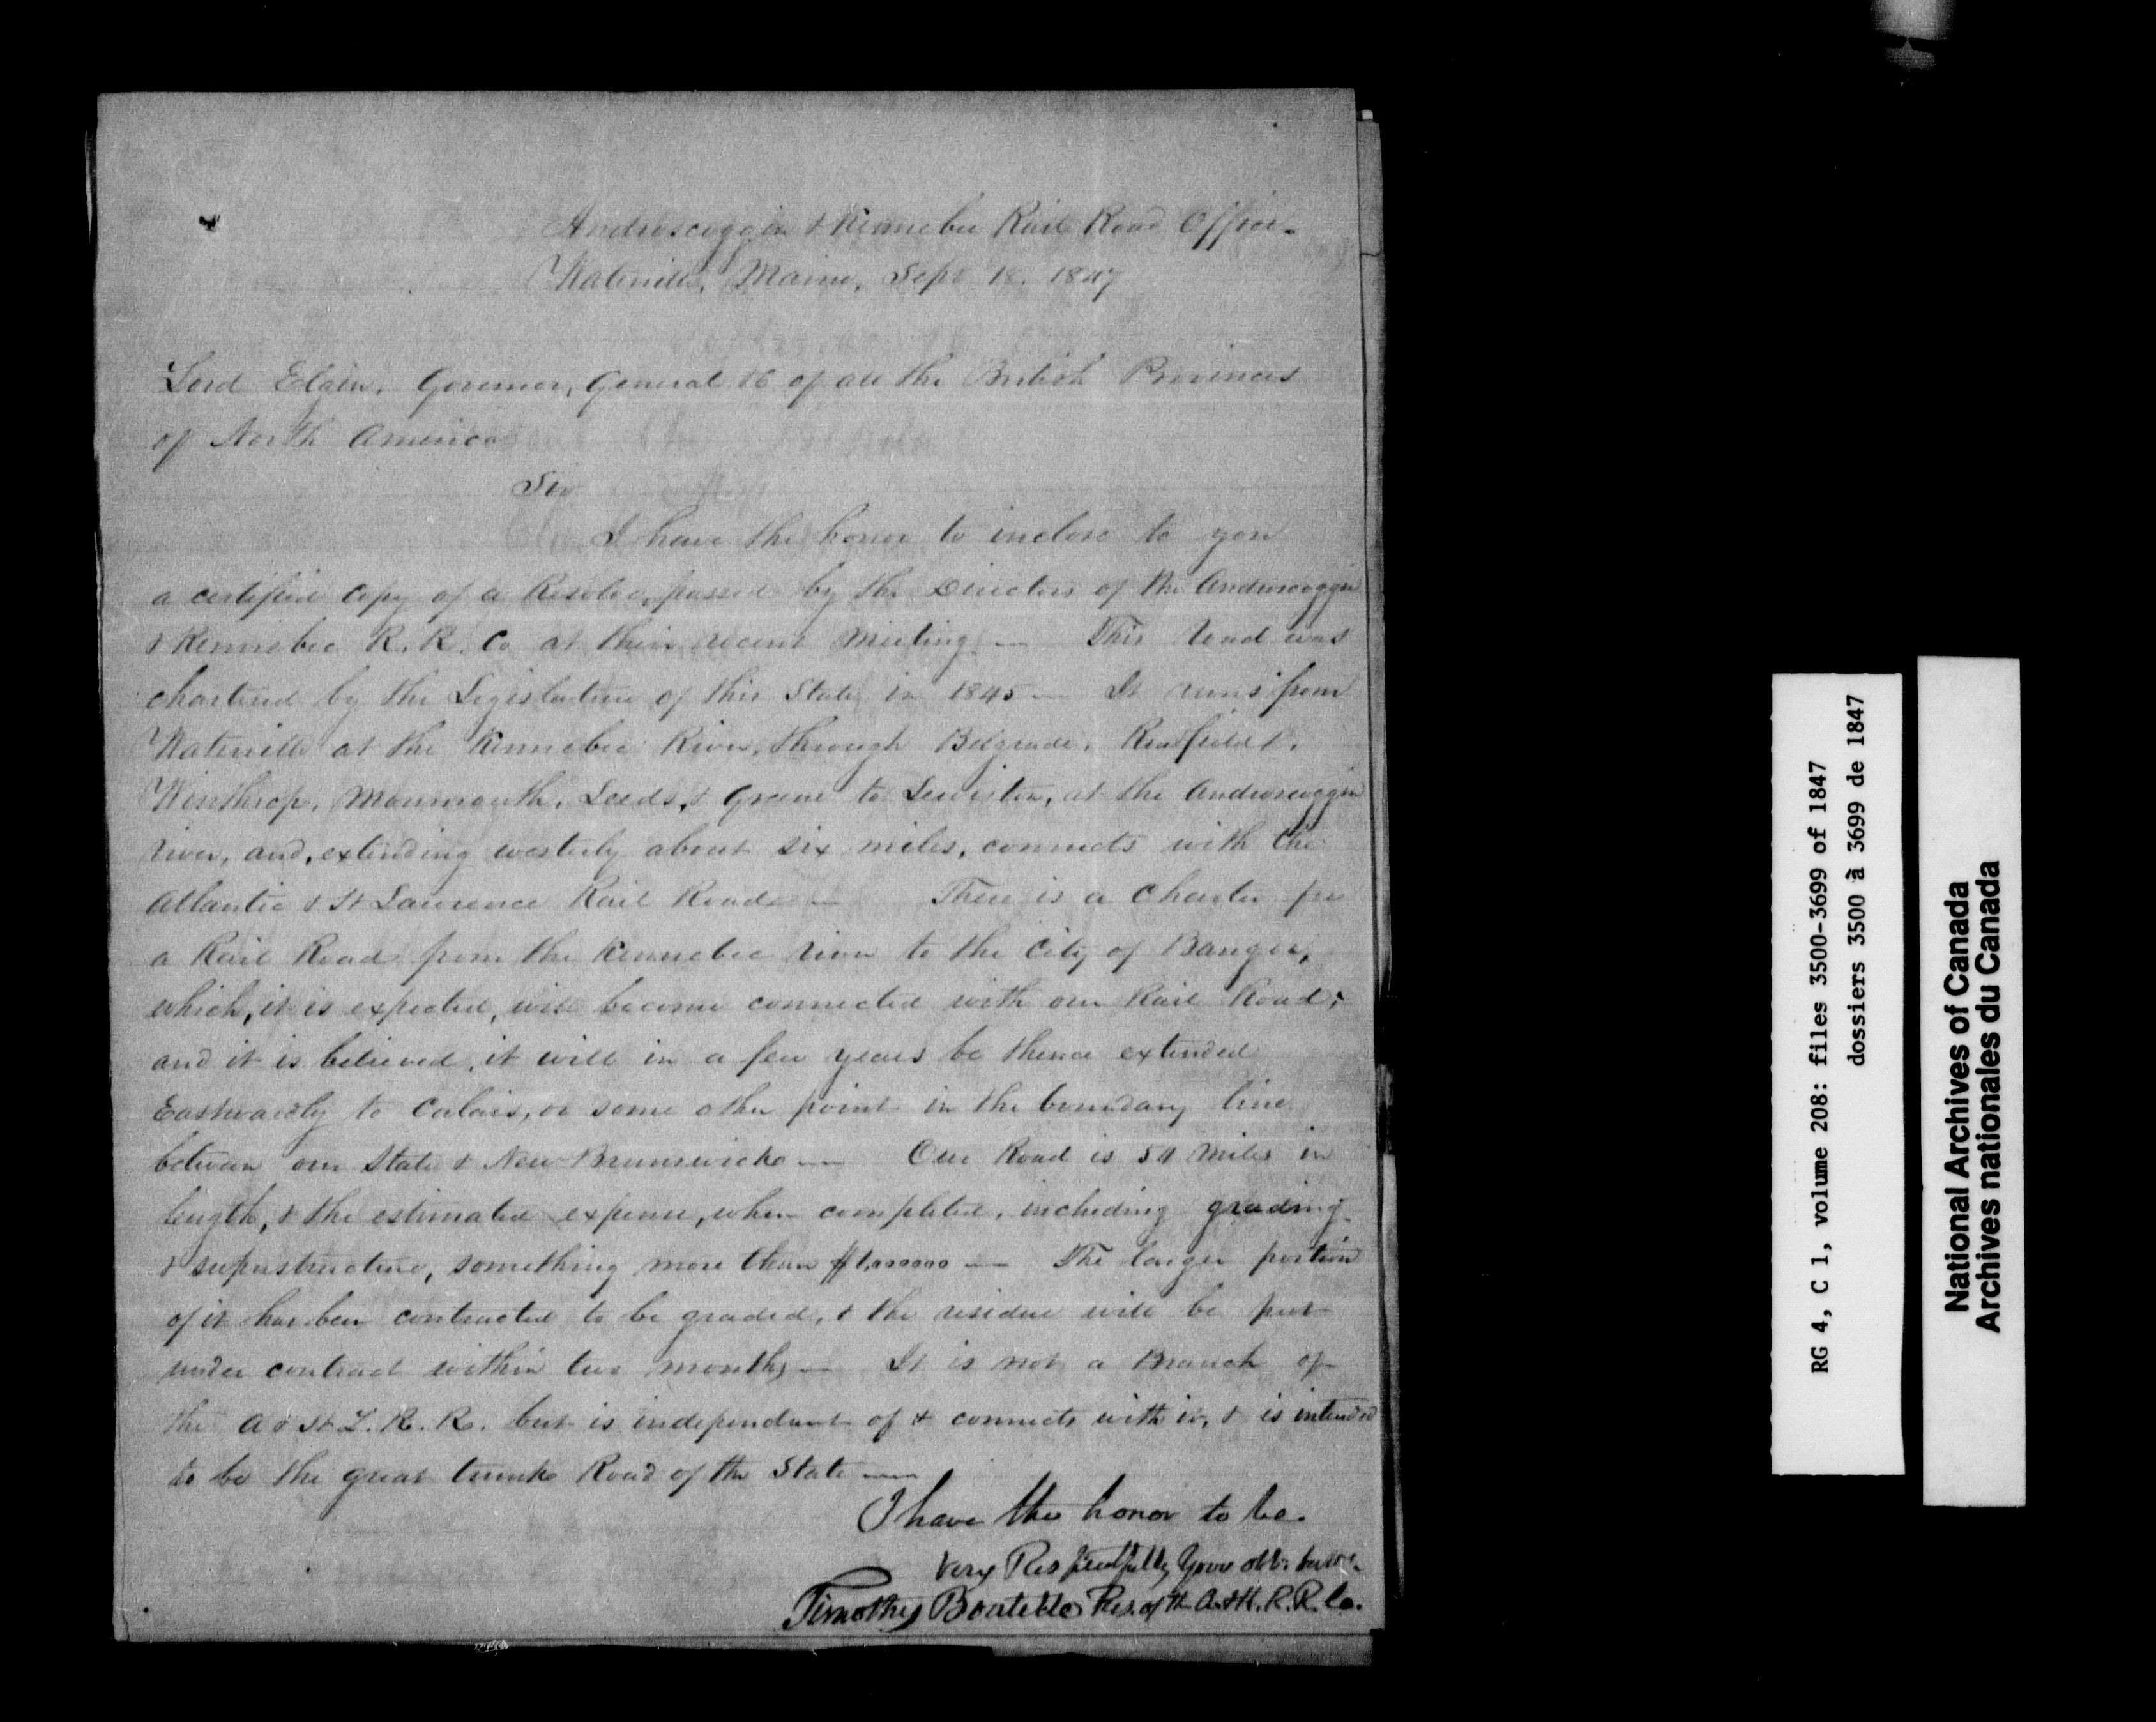 Androscoggin & Kennebec Rail Road Office.
Waterville, Maine, Sept 18. 1847
Lord Elgin. Governor, General &c of all the British Provinces
of North America
Sir
I have the honor to inclose to you
a certified Copy of a Resolve, passed by the Directors of the Androscoggin
& Kennebec R. R. Co at their recent Meeting — This Road was
chartered by the Legislature of this State in 1845 — It runs from
Waterville at the Kennebec River, through Belgrade, Readfield,
Winthrop, Monmouth, Leeds, & Greene to Lewiston, at the Androscoggin
river, and, extending westerly about six miles, connects with the
Atlantic & St Lawrence Rail Road — There is a Charter for
a Rail Road from the Kennebec river to the City of Bangor,
which, it is expected, will become connected with our Rail Road;
and it is believed, it will in a few years be thence extended
Eastwardly to Calais, or some other point in the boundary line
between our State & New-Brunswick — Our Road is 54 miles in
length, & the estimated expense, when completed, including grading
& superstructure, something more than $1,000000 — The larger portion
of it has been contracted to be graded, & the residue will be put
under contract within two months — It is not a Branch of
the A & St L. R. R. but is independent of & connects with it, & is intended
to be the great trunk Road of the State —
I have the honor to be
Very Respectfully Your obt. servt.
Timothy Boutelle Pres. of the A. & K. R. R. Co.
RG 4, C 1, volume 208: files 3500-3699 of 1847
dossiers 3500 à 3699 de 1847
National Archives of Canada
Archives nationales du Canada